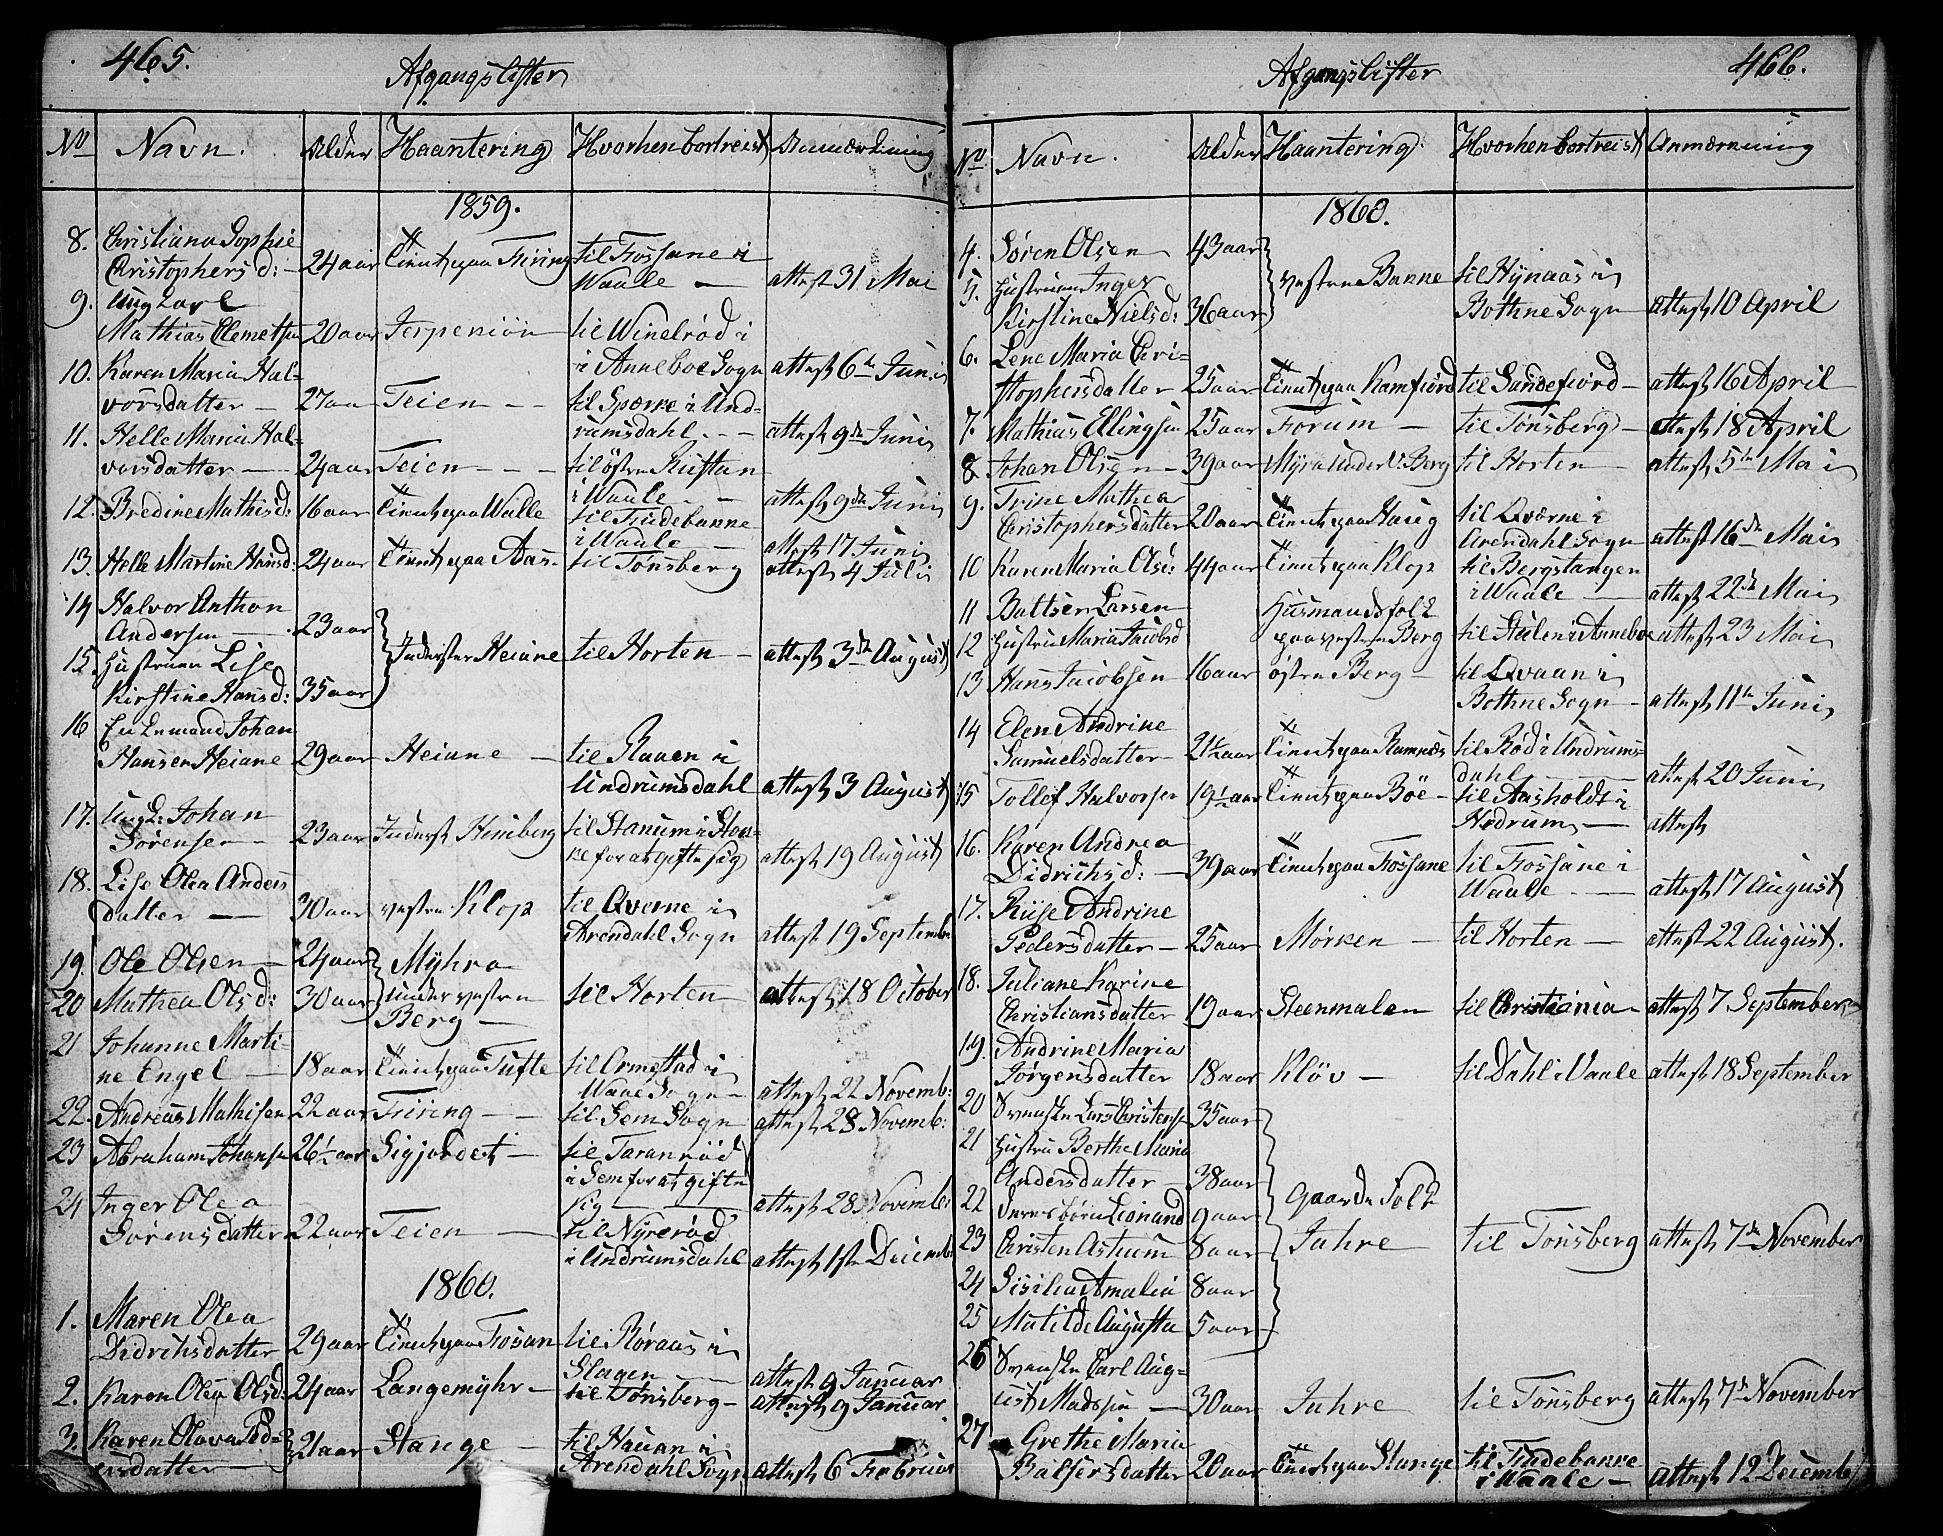 465.
Afgangslister
No Navn. Alder Haantering Hvorhen bortreist Anmærkning
1859.
8. Christiana Sophie
Christophersd: 24 aar Tient paa Firing til Fossane i
Waale attest 31 Mai
9. Ung Carl
Mathias Clemetsen 20 aar Jerpeniön til Winelrød i
i Anneboe Sogn attest 6te Juni
10. Karen Maria Hal-
vorsdatter 27 aar Teien til Sperre i Und-
rumsdahl attest 9de Juni
11. Helle Maria Hal-
vorsdatter 24 aar Teien til østre Rustan
i Waale attest 9de Juni
12. Bredine Mathisd: 16 aar Tient paa Walle til Trudebanne
i Waale attest 17 Juni
13. Helle Martine Hansd: 24 aar Tient paa Aas til Tønsberg attest 4 Juli
14 Halvor Anthon
Andersen 23 aar
15 Hustruen Lise
Kirstine Hansd: 35 aar Inderster Heiane til Horten attest 3de August
16 En Lemand Johan
Hansen Heiane 29 aar Heiane til Raaen i
Undrumsdahl attest 3 August
17. Ung k: Johan
Sørensen 23 aar Inderst Himberg til Stanum i Stok-
ke for at gifte sig attest 19 August
18. Lise Olea Anders
datter 30 aar vestre Klop til Qverne i
Arendahl Sogn attest 19 Septemb
19. Ole Olsen 24 aar
20 Mathea Olsd: 30 aar Myhra
under vestre
Berg til Horten attest 18 October
21 Johanne Marti-
ne Engel 18 aar Tient paa Tufte til Ormestad i
Waale Sogn attest 22 Novemb:
22. Andreas Mathisen 22 aar Firing til Sem Sogn attest 28 Novemb:
23 Abraham Johansen 26½ aar Sigjordet til Taranrød
i Sem for at gifte
sig attest 28 Novemb:
24 Inger Olea
Sørensdatter 22 aar Teien til Nyrerød
i Undrumsdahl attest 1ste Decemb
1860.
1. Maren Olea
Didrichsdatter 29 aar Tient paa Fossan til Røraas i
Slagen attest 9 Januar
2. Karen Olea Olsd: 24 aar Langemyhr til Tønsberg attest 9 Januar
3. Karen Olava Ped-
ersdatter 21 aar Stange til Hauan i
Arendahl Sogn attest 6 Februar
466.
Afgangslister
No Navn. Alder Haantering Hvorhen bortreist Anmærkning
1860.
4. Søren Olsen 43 aar
5. Hustruen Inger
Kirstine Nielsd: 36 aar vestre Banne til Hynaas i
Bothne Sogn attest 10 April
6. Lene Maria Chri-
stophersdatter 25 aar Tient paa Kamfiord til Sandefiord attest 16 April
7. Mathias Ellingsen 25 aar Forum til Tønsberg attest 18 April
8 Johan Olsen 39 aar Myra under V. Berg til Horten attest 5te Mai
9. Trine Mathea
Christophersdatter 20 aar Tient paa Haug til Qværne i
Arendahl Sogn attest 16de Mai
10 Karen Maria Olsd: 44 aar Tient paa Klop til Bergstangen
i Waale attest 22de Mai
11 Baltser Larsen
12 Hustru Maria Jacobsd Husmandsfolk
paa vestre Berg til Stulen i Anneboe attest 23 Mai
13 Hans Jacobsen 16 aar østre Berg til Qvaan i
Bothne Sogn attest 11te Juni
14 Elen Andrine
Samuelsdatter 21½ aar Tient paa Ramnæs til Rød i Undrums-
dahl attest 20 Juni
15 Tollef Halvorsen 19½ aar Tient paa Böe til Aasholdt i
Hedrum attest
16. Karen Andrea
Didrichsd: 39 aar Tient paa Fossane til Fossane i
Waale attest 17 August
17. Riise Andrine
Pedersdatter 25 aar Mørken til Horten attest 22 August.
18. Juliane Karine
Christiansdatter 19 aar Steenmalen til Christiania attest 7 September
19. Andrine Maria
Jørgensdatter 18 aar Kløv til Dahl i Vaale attest 18 September
20 Svenske Lars Christensen 35 aar
21 Hustru Berthe Maria
Andersdatter 38 aar
22 deres børn Leonard 9 aar Gaarde Folk
23 Christen Astrum 8 aar Jahre til Tønsberg attest 7de November
24 Sisilia Amalia 8 aar
25 Matilde Augusta 5 aar
26 Svenske Carl Aug-
ust Madssen 30 aar Jahre til Tønsberg attest 7de November
27 Grethe Maria
Baltsersdatter 20 aar Tient paa Stange til Trudebanne
i Waale attest 12 Decemb